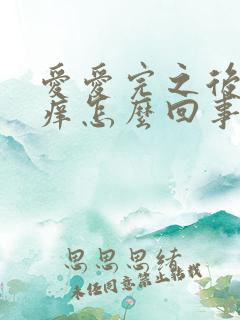 愛愛完之後
痒怎麼回事
思思思緒
未经同意禁止转载